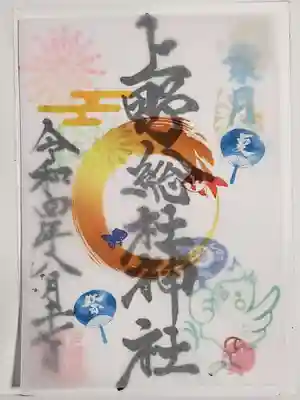 葉月
夏
上野総社神社
令和四年八月
祭